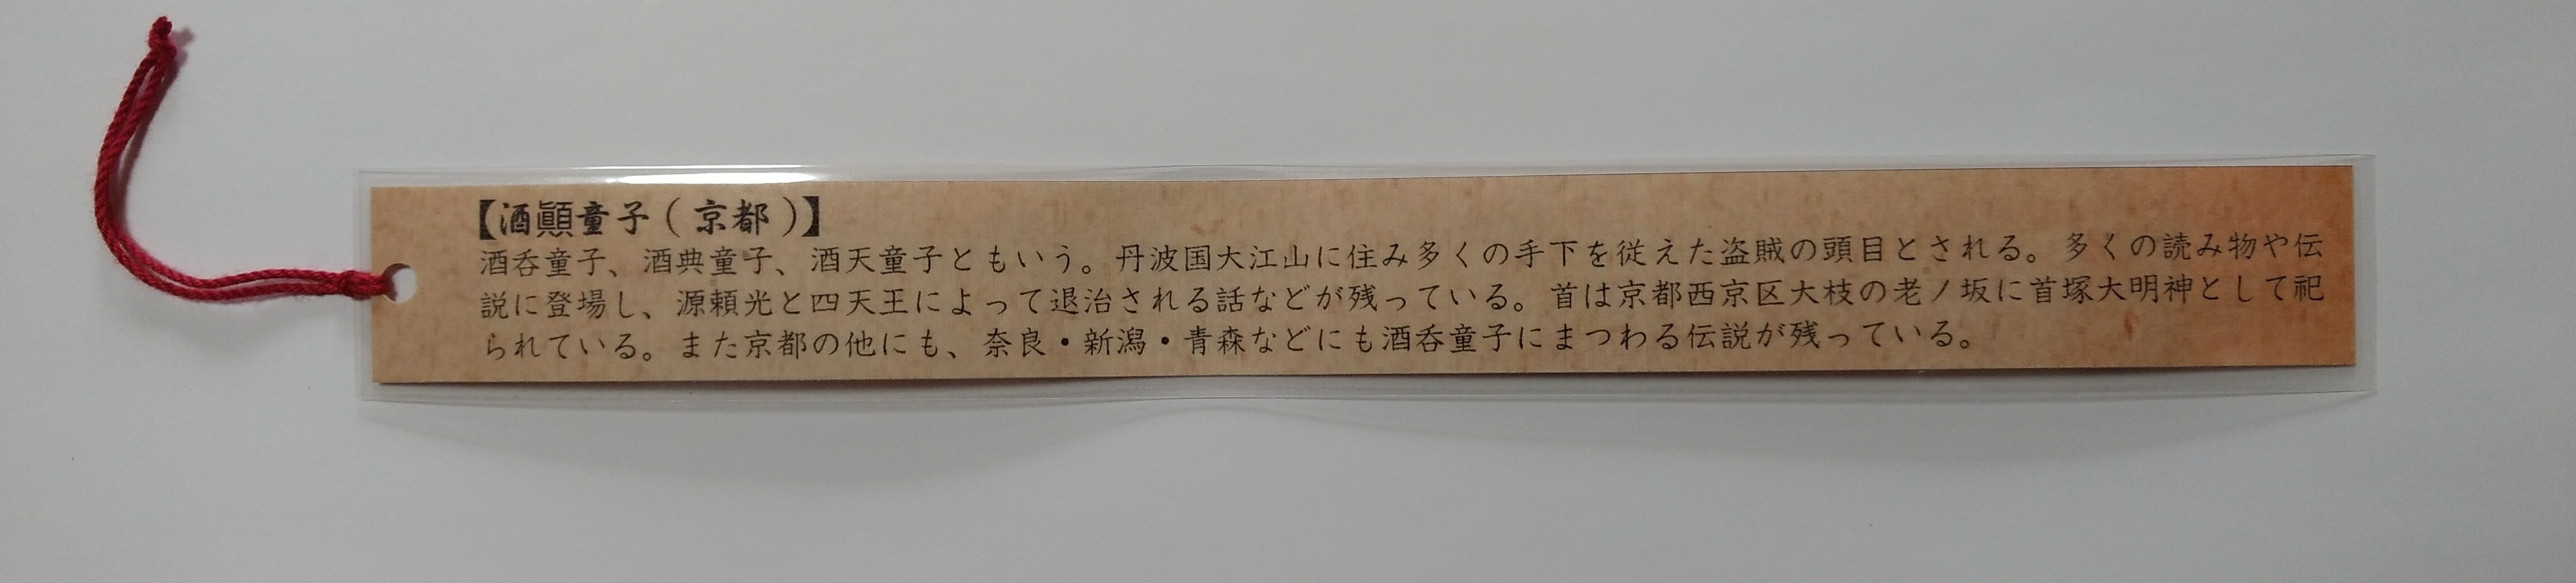 【酒顚童子(京都)】
酒呑童子、酒典童子、酒天童子ともいう。丹波国大江山に住み多くの手下を従えた盗賊の頭目とされる。多くの読み物や伝
説に登場し、源頼光と四天王によって退治される話などが残っている。首は京都西京区大枝の老ノ坂に首塚大明神として祀
られている。また京都の他にも、奈良・新潟・青森などにも酒呑童子にまつわる伝説が残っている。